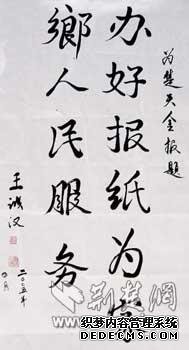 为楚天金报题
办好报纸为
鄉人民服务
王诚汉
二〇〇五年
四月
荆楚网
织梦内容管理系统
DEDECMS.COM